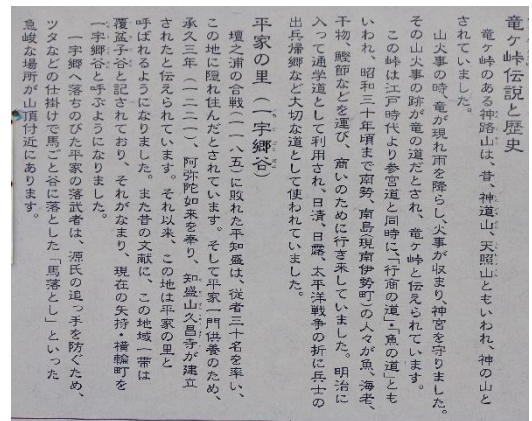 竜ヶ峠伝説と歴史
竜ヶ峠のある神路山は、昔、神道山、天照山ともいわれ、神の山と
されていました。
山火事の時、竜が現れ雨を降らし、火事が収まり、神宮を守りました。
その山火事の跡が竜の道だとされ、竜ヶ峠と伝えられています。
この峠は江戸時代より参宮道と同時に、「行商の道」・「魚の道」とも
いわれ、昭和三十年頃まで南勢、南島(現南伊勢町)の人々が魚、海老、
干物、鰹節などを運び、商いのために行き来していました。明治に
入って通学道として利用され、日清、日露、太平洋戦争の折に兵士の
出兵帰郷など大切な道として使われていました。
平家の里(一宇郷谷)
壇之浦の合戦(一一八五)に敗れた平知盛は、従者三十名を率い、
この地に隠れ住んだとされています。そして平家一門供養のため、
承久三年(一二二一)、阿弥陀如来を奉り、知盛山久昌寺が建立
されたと伝えられています。それ以来、この地は平家の里と
呼ばれるようになりました。また昔の文献に、この地域一帯は
覆盆子谷と記されており、それがなまり、現在の矢持・横輪町を
一宇郷谷と呼ぶようになりました。
一宇郷へ落ちのびた平家の落武者は、源氏の追っ手を防ぐため、
ツタなどの仕掛けで馬ごと谷に落とした「馬落とし」といった
急峻な場所が山頂付近にあります。